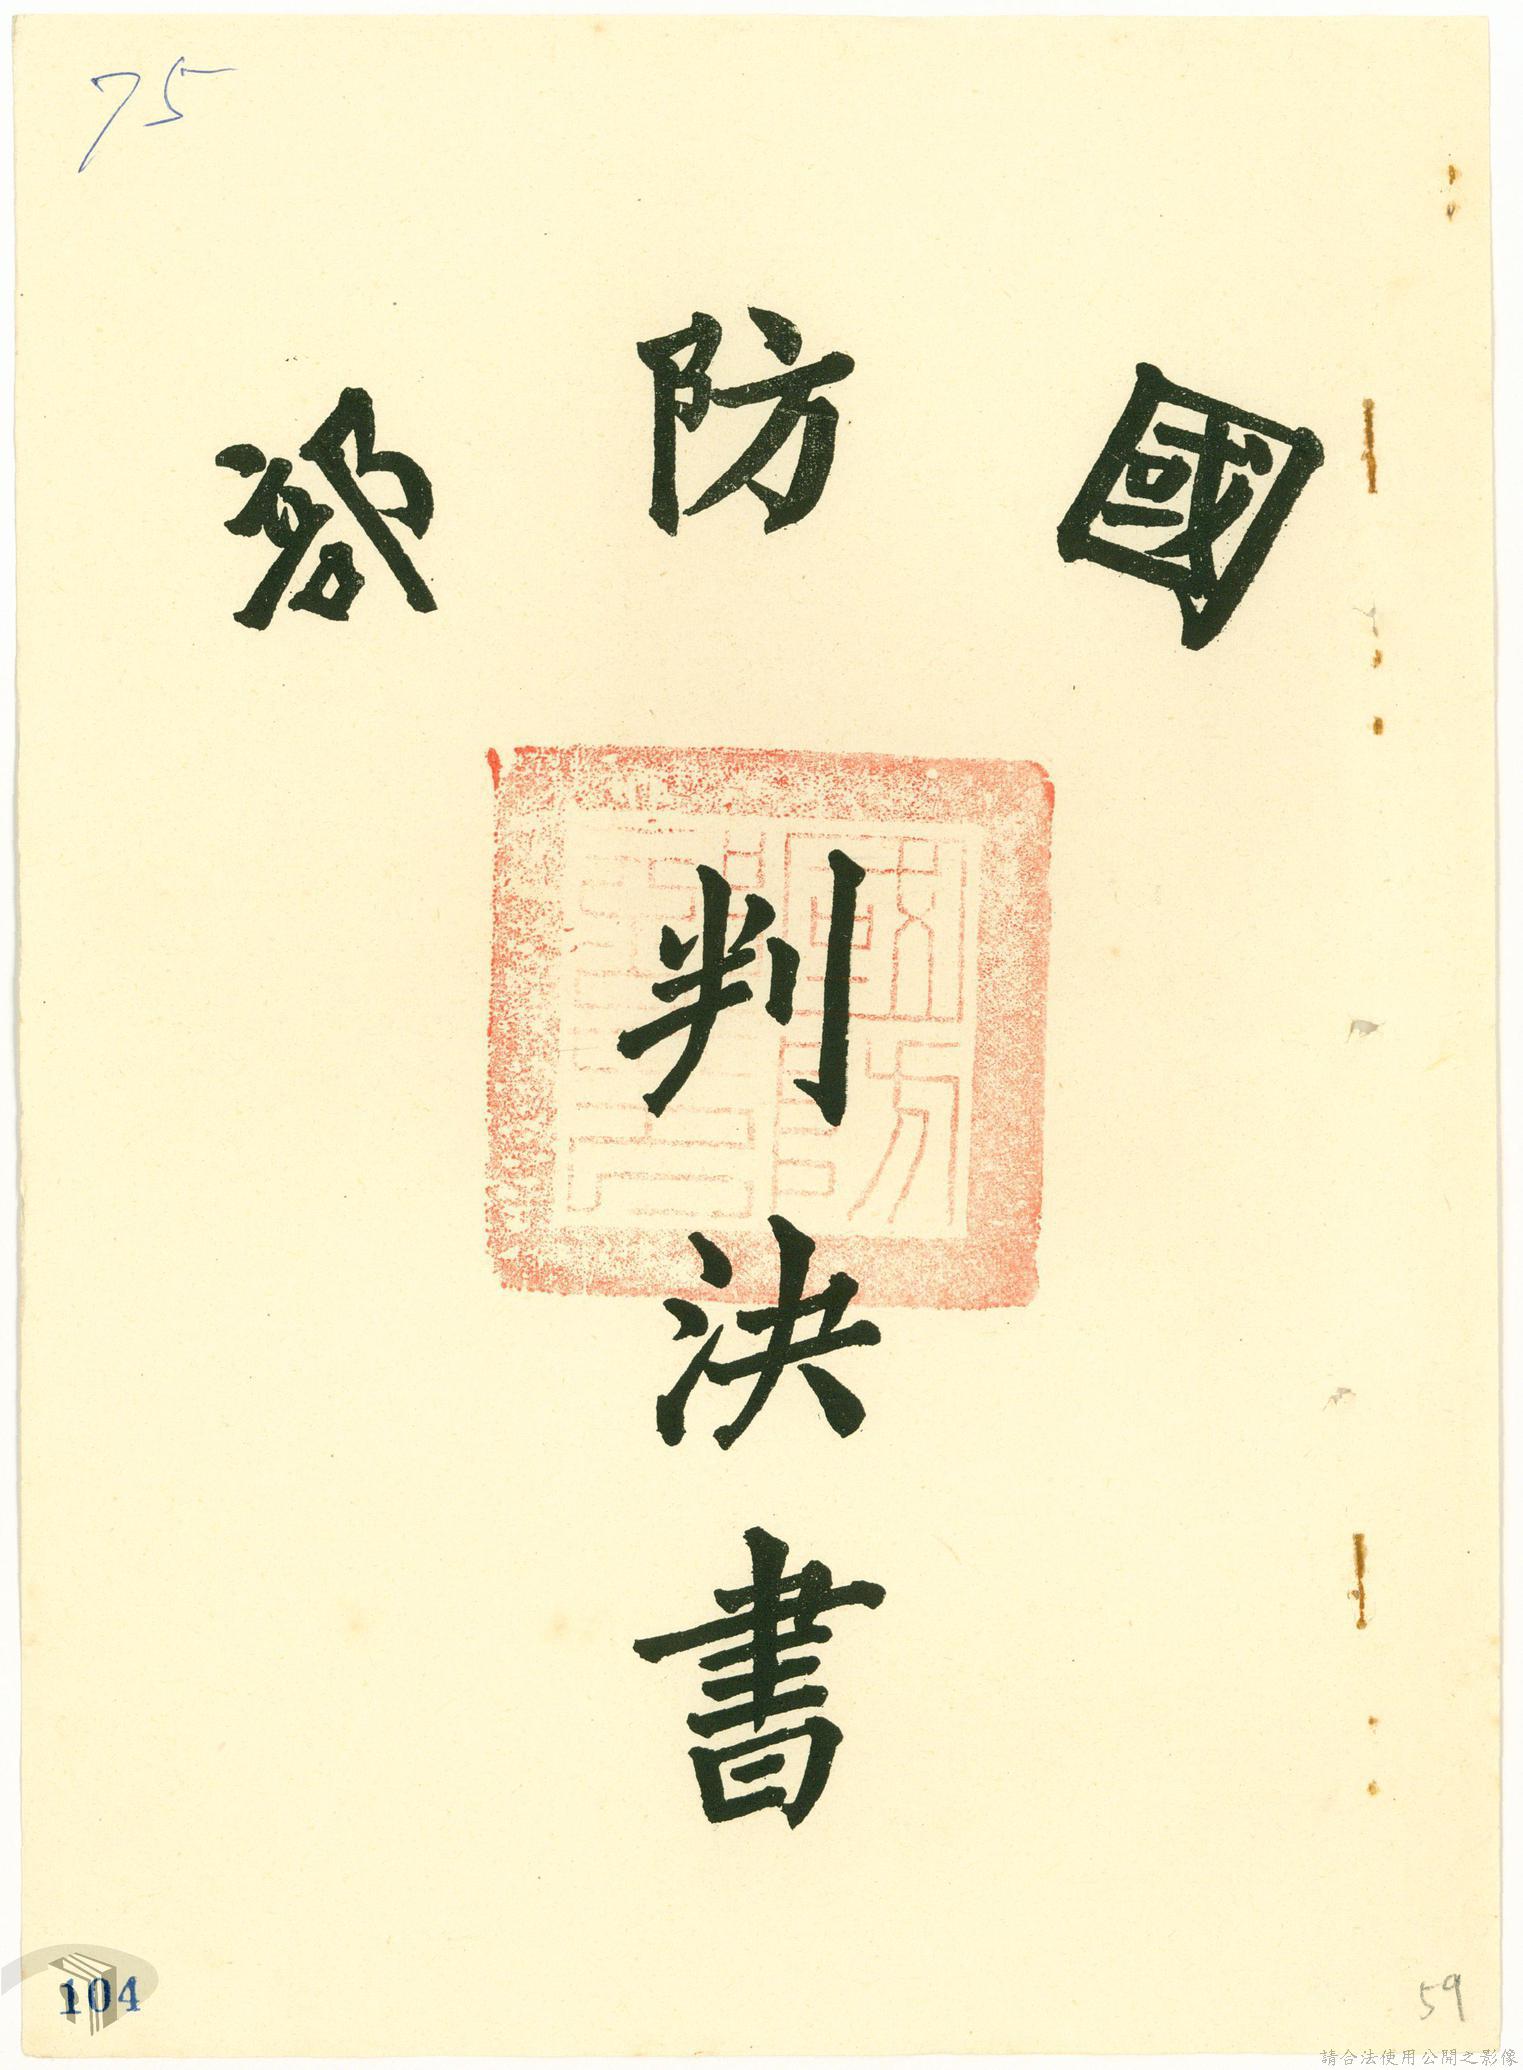 75
國防部
判決書
104
59
請合法使用公開之影像